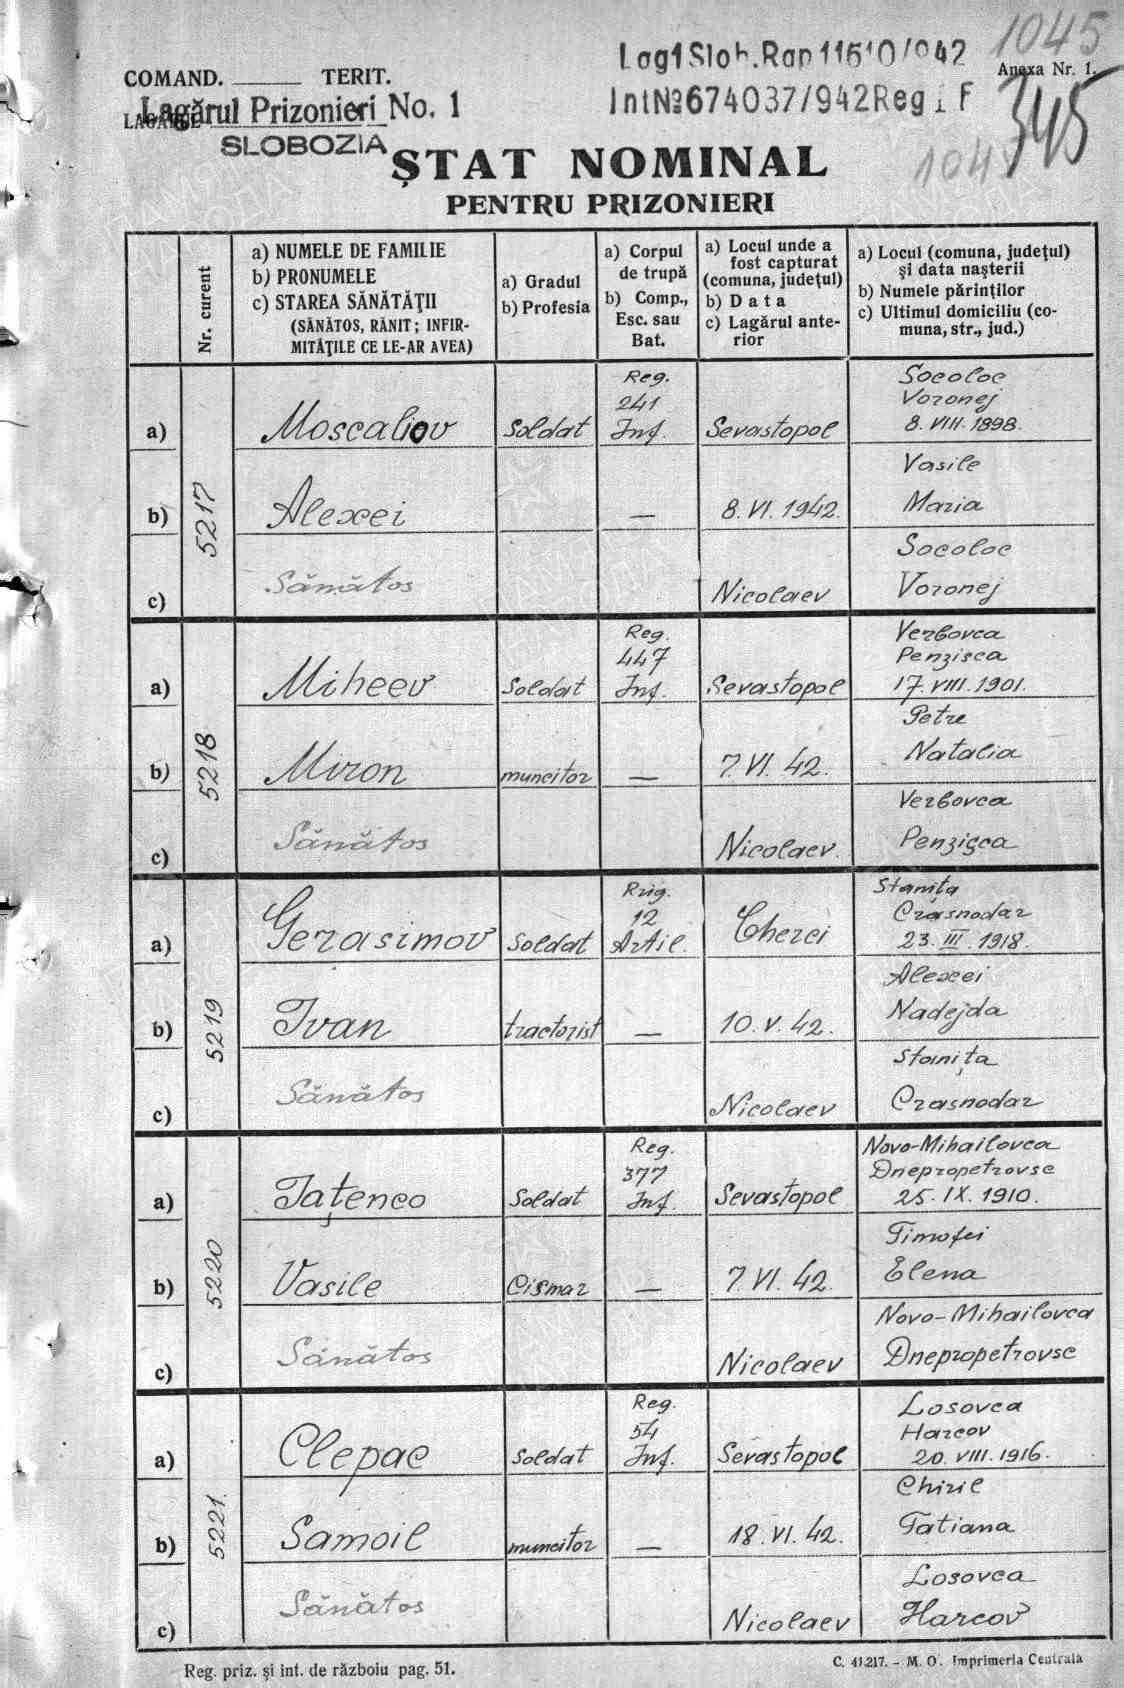 1045
Lag1Slob.Rap11610/942
COMAND. TERIT.
Anexa Nr. 1.
Lagărul Prizonieri No. 1
IntNº674037/942Reg 1 F
345
SLOBOZIA
ȘTAT NOMINAL
PENTRU PRIZONIERI
Nr. curent
a) NUMELE DE FAMILIE
b) PRONUMELE
c) STAREA SĂNĂTĂȚII
(SĂNĂTOS, RĂNIT; INFIR-
MITĂȚILE CE LE-AR AVEA)
a) Gradul
b) Profesia
a) Corpul
de trupă
b) Comp.,
Esc. sau
Bat.
a) Locul unde a
fost capturat
(comuna, județul)
b) Data
c) Lagărul ante-
rior
a) Locul (comuna, județul)
și data nașterii
b) Numele părinților
c) Ultimul domiciliu (co-
muna, str., jud.)
5217
a) Moscaliov Soldat Reg.
241
Inf. Sevastopol Socoloc
Voronej
8.VIII.1898.
b) Alexei — 8.VI.1942. Vasile
Maria
c) Sănătos Nicolaev Socoloc
Voronej
5218
a) Miheev Soldat Reg.
447
Inf. Sevastopol Verbovca
Penzisca
17.VIII.1901.
b) Miron muncitor — 7.VI.42. Petre
Natalia
c) Sănătos Nicolaev. Verbovca
Penzisca
5219
a) Gerasimov Soldat Rig.
12
Artil. Cherci Stanița
Crasnodar
23.III.1918.
b) Ivan tractorist — 10.V.42. Alexei
Nadejda
c) Sănătos Nicolaev Stanița
Crasnodar
5220
a) Tațenco Soldat Reg.
377
Inf. Sevastopol Novo-Mihailovca
Dnepropetrovsc
25.IX.1910.
b) Vasile Cismar — 7.VI.42. Timofei
Elena
c) Sănătos Nicolaev Novo-Mihailovca
Dnepropetrovsc
5221.
a) Clepac Soldat Reg.
54
Inf. Sevastopol Losovca
Harcov
20.VIII.1916.
b) Samoil muncitor — 18.VI.42. Chiril
Tatiana
c) Sănătos Nicolaev Losovca
Harcov
Reg. priz. și int. de războiu pag. 51.
C. 41.217. - M. O. Imprimeria Centrala